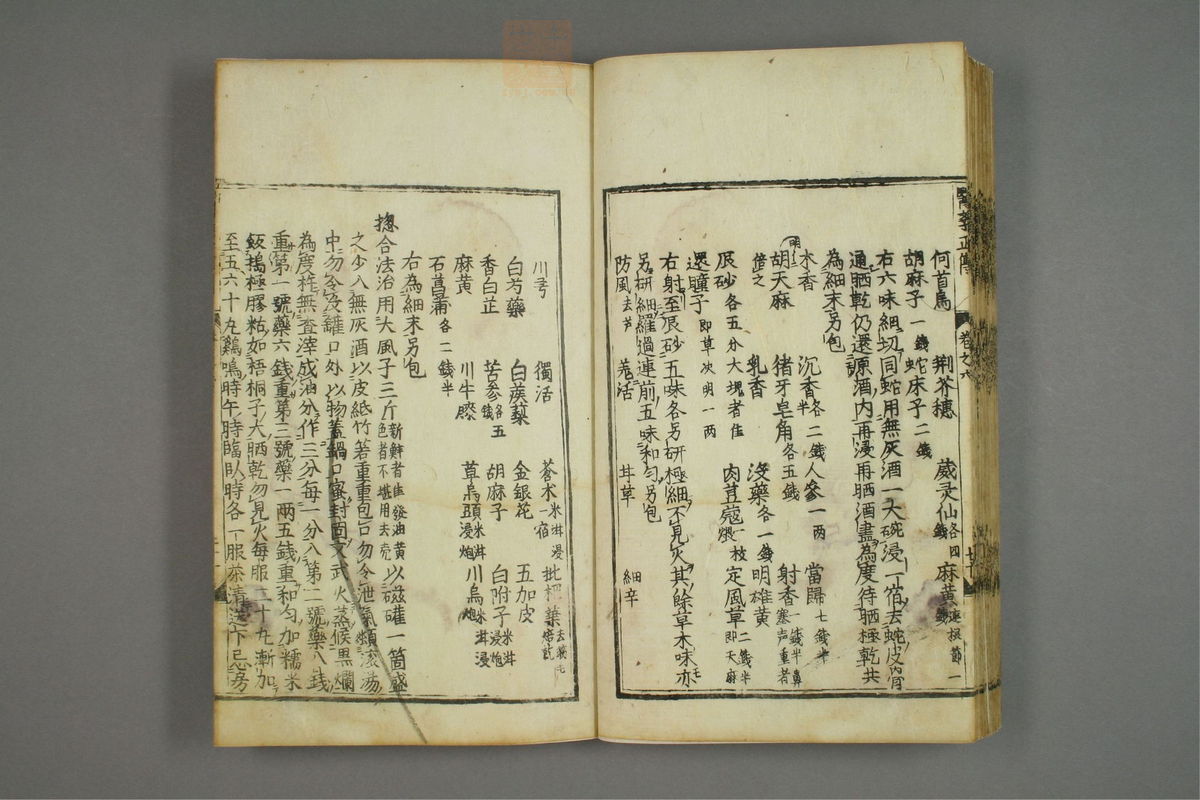 醫學正傳 卷之六
何首烏 荆芥穗 葳灵仙各四錢 麻黄連根節一錢
胡麻子一錢 蛇床子二錢
右六味細切同蛇用無灰酒一大碗浸一宿去蛇皮内骨
通晒乾仍還原酒内再浸再晒酒盡為度待晒極乾共
為細末另包
木香 沉香各二錢半 人參一两 當歸七錢半
胡天麻明亮 猪牙皂角各五錢 射香一錢半鼻塞声重者
倍之 乳香 沒藥各一錢 明雄黄
辰砂各五分大塊者佳 肉荳蔻煨一枚 定風草二錢半即天麻
還瞳子即草决明一两
右射至辰砂五味各另研極細不見火其餘草木味亦
另研細羅過連前五味和勻另包
防風去芦 羗活 甘草 細辛
川芎 獨活 蒼朮米泔浸一宿 枇杷葉去筋毛焙乾
白芍藥 白蒺藜 金銀花 五加皮
香白芷 苦參各五錢 胡麻子 白附子米泔浸炮
麻黄 川牛膝 草烏頭米泔浸炮 川烏米泔浸炮
石菖蒲各二錢半
右為細末另包
揔合法治用大風子三斤新鮮者佳發油黄色者不堪用去壳以磁罐一箇盛
之少入無灰酒以皮紙竹箬重重包口勿令泄氣頻滚湯
中勿令及罐口外以物蓋鍋口蜜封固文武火蒸候黒爛
為度杵無查滓成油分作三分每一分入第二號藥八錢
重第一號藥六錢重第三號藥一两五錢重和勻加糯米
飯搗極膠粘如梧桐子大晒乾勿見火每服二十九漸加
至五六十九鷄鳴時午時臨卧時各一服茶清送下忌房